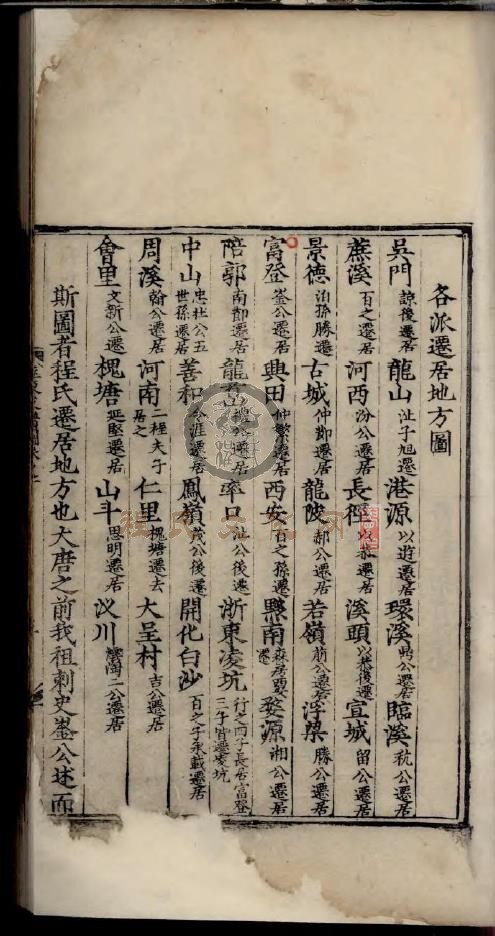 各派遷居地方圖
吳門 諒後遷居 龍山 沚子旭遷 港源 以遊遷居 環溪 公遷居 臨溪 秇公遷居
蕉溪 百之遷居 河西 汾公遷居 長徑 遷居 溪頭 以恭後遷 宣城 留公遷居
景德 洎孫勝遷 古城 仲節遷居 龍陂 郝公遷居 若嶺 公遷居 浮梁 勝公遷居
富登 崟公遷居 典田 仲繁遷居 西安 百之孫遷 黟南 森居 遷 婺源 湘公遷居
陪郭 南節遷居 龍 公遷居 率口 沚公後遷 浙東凌坑 行之西子長居富登 三午皆遷凌坑
中山 忠壮公五世孫遷居 善和 公遷居 鳳嶺 茂公後遷 開化白沙 百之子承載遷居
周溪 翰公遷居 河南 二程夫子居之 仁里 槐塘遷去 大呈村 吉公遷居
會里 文新公遷 槐塘 延堅遷居 山斗 思明遷居 汊川 二公遷居
斯圖者程氏遷居地方也大唐之前我祖刺史崟公述而